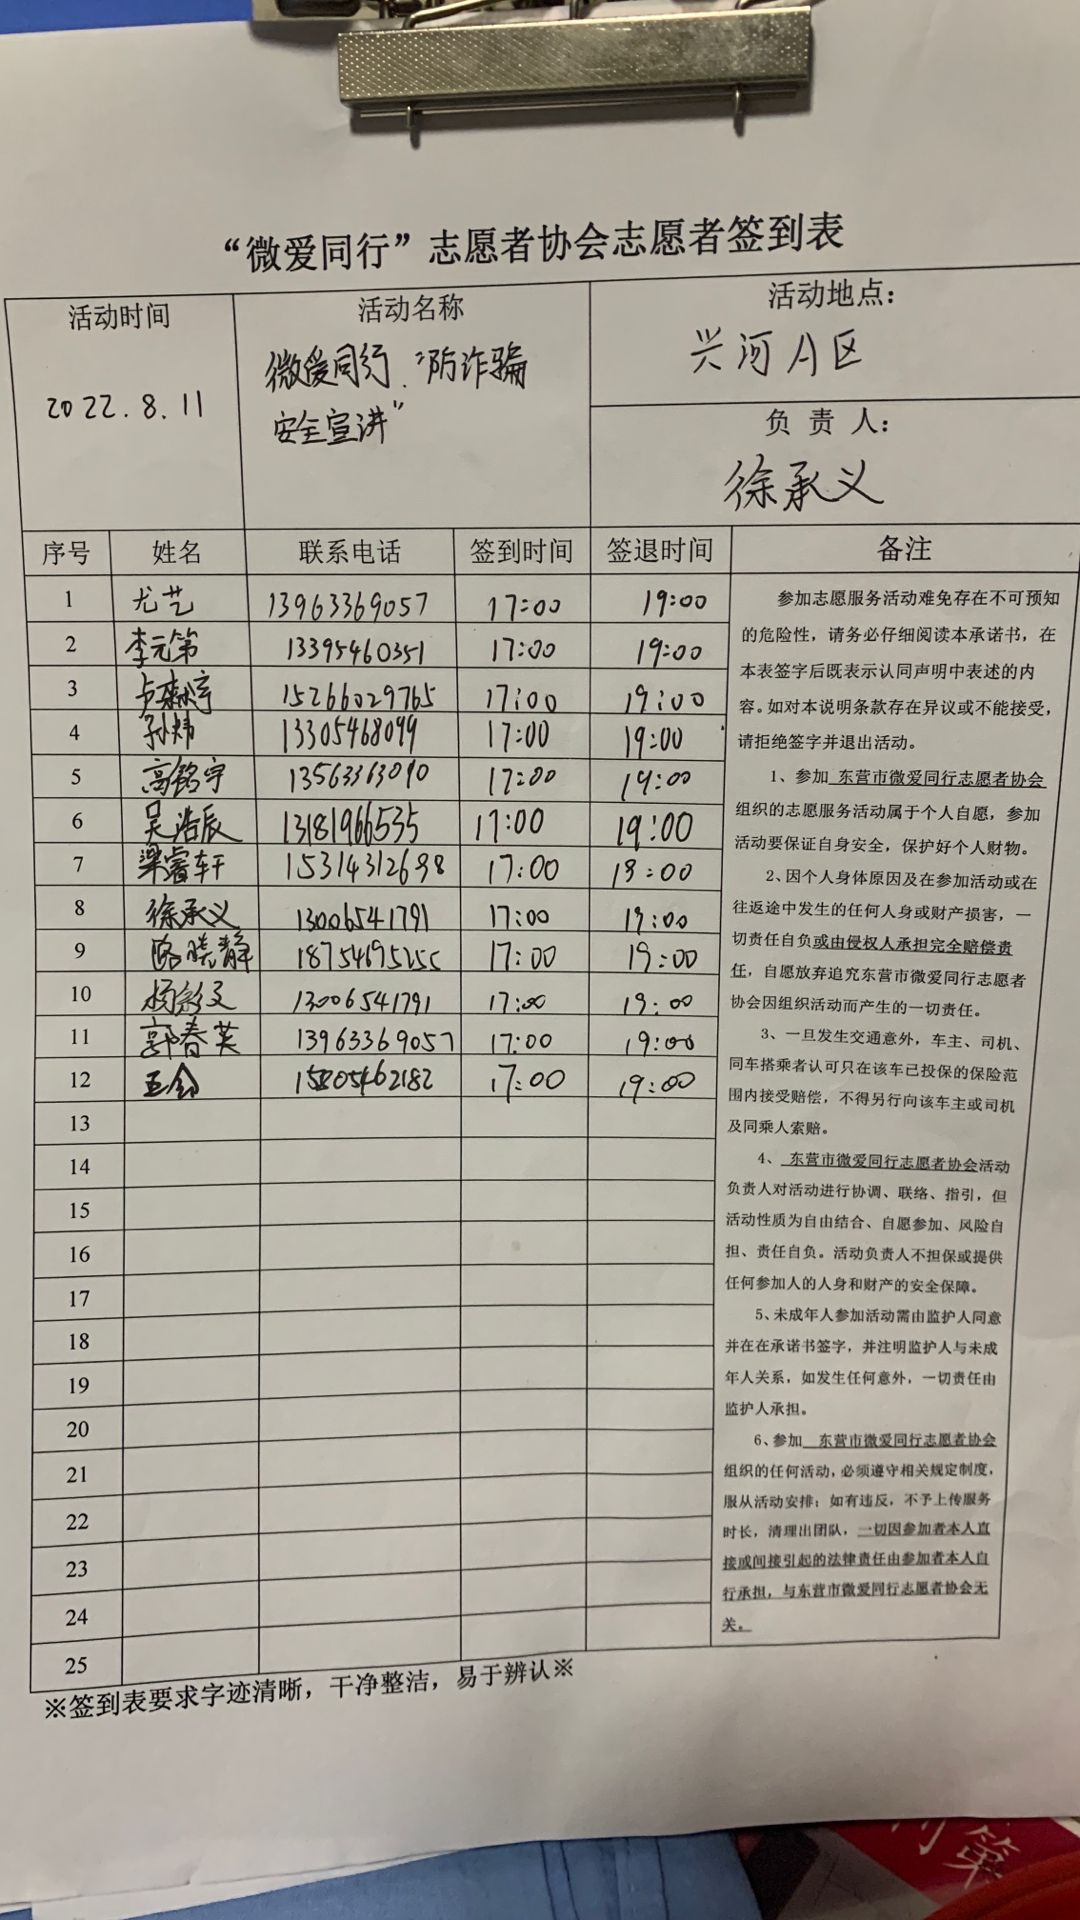 “微爱同行”志愿者协会志愿者签到表
活动时间
2022.8.11
活动名称
微爱同行.“防诈骗
安全宣讲”
活动地点：
兴河A区
负 责 人：
徐承义
序号 姓名 联系电话 签到时间 签退时间 备注
1 尤艺 13963369057 17:00 19:00
2 李元第 13395460351 17:00 19:00
3 15266029765 17:00 19:00
4 孙炜 13305468099 17:00 19:00
5 高铭宇 13563363090 17:00 19:00
6 吴浩辰 13181966535 17:00 19:00
7 梁睿轩 17:00 19:00
8 徐承义 13006541791 17:00 19:00
9 路晓静 17:00 19:00
10 13006541791 17:00 19:00
11 郭春英 13963369057 17:00 19:00
12 17:00 19:00
13
14
15
16
17
18
19
20
21
22
23
24
25
参加志愿服务活动难免存在不可预知
的危险性，请务必仔细阅读本承诺书，在
本表签字后既表示认同声明中表述的内
容。如对本说明条款存在异议或不能接受，
请拒绝签字并退出活动。
1、参加 东营市微爱同行志愿者协会
组织的志愿服务活动属于个人自愿，参加
活动要保证自身安全，保护好个人财物。
2、因个人身体原因及在参加活动或在
往返途中发生的任何人身或财产损害，一
切责任自负或由侵权人承担完全赔偿责
任，自愿放弃追究东营市微爱同行志愿者
协会因组织活动而产生的一切责任。
3、一旦发生交通意外，车主、司机、
同车搭乘者认可只在该车已投保的保险范
围内接受赔偿，不得另行向该车主或司机
及同乘人索赔。
4、 东营市微爱同行志愿者协会活动
负责人对活动进行协调、联络、指引，但
活动性质为自由结合、自愿参加、风险自
担、责任自负。活动负责人不担保或提供
任何参加人的人身和财产的安全保障。
5、未成年人参加活动需由监护人同意
并在在承诺书签字，并注明监护人与未成
年人关系，如发生任何意外，一切责任由
监护人承担。
6、参加 东营市微爱同行志愿者协会
组织的任何活动，必须遵守相关规定制度，
服从活动安排；如有违反，不予上传服务
时长，清理出团队，一切因参加者本人直
接或间接引起的法律责任由参加者本人自
行承担，与东营市微爱同行志愿者协会无
关。
※签到表要求字迹清晰，干净整洁，易于辨认※